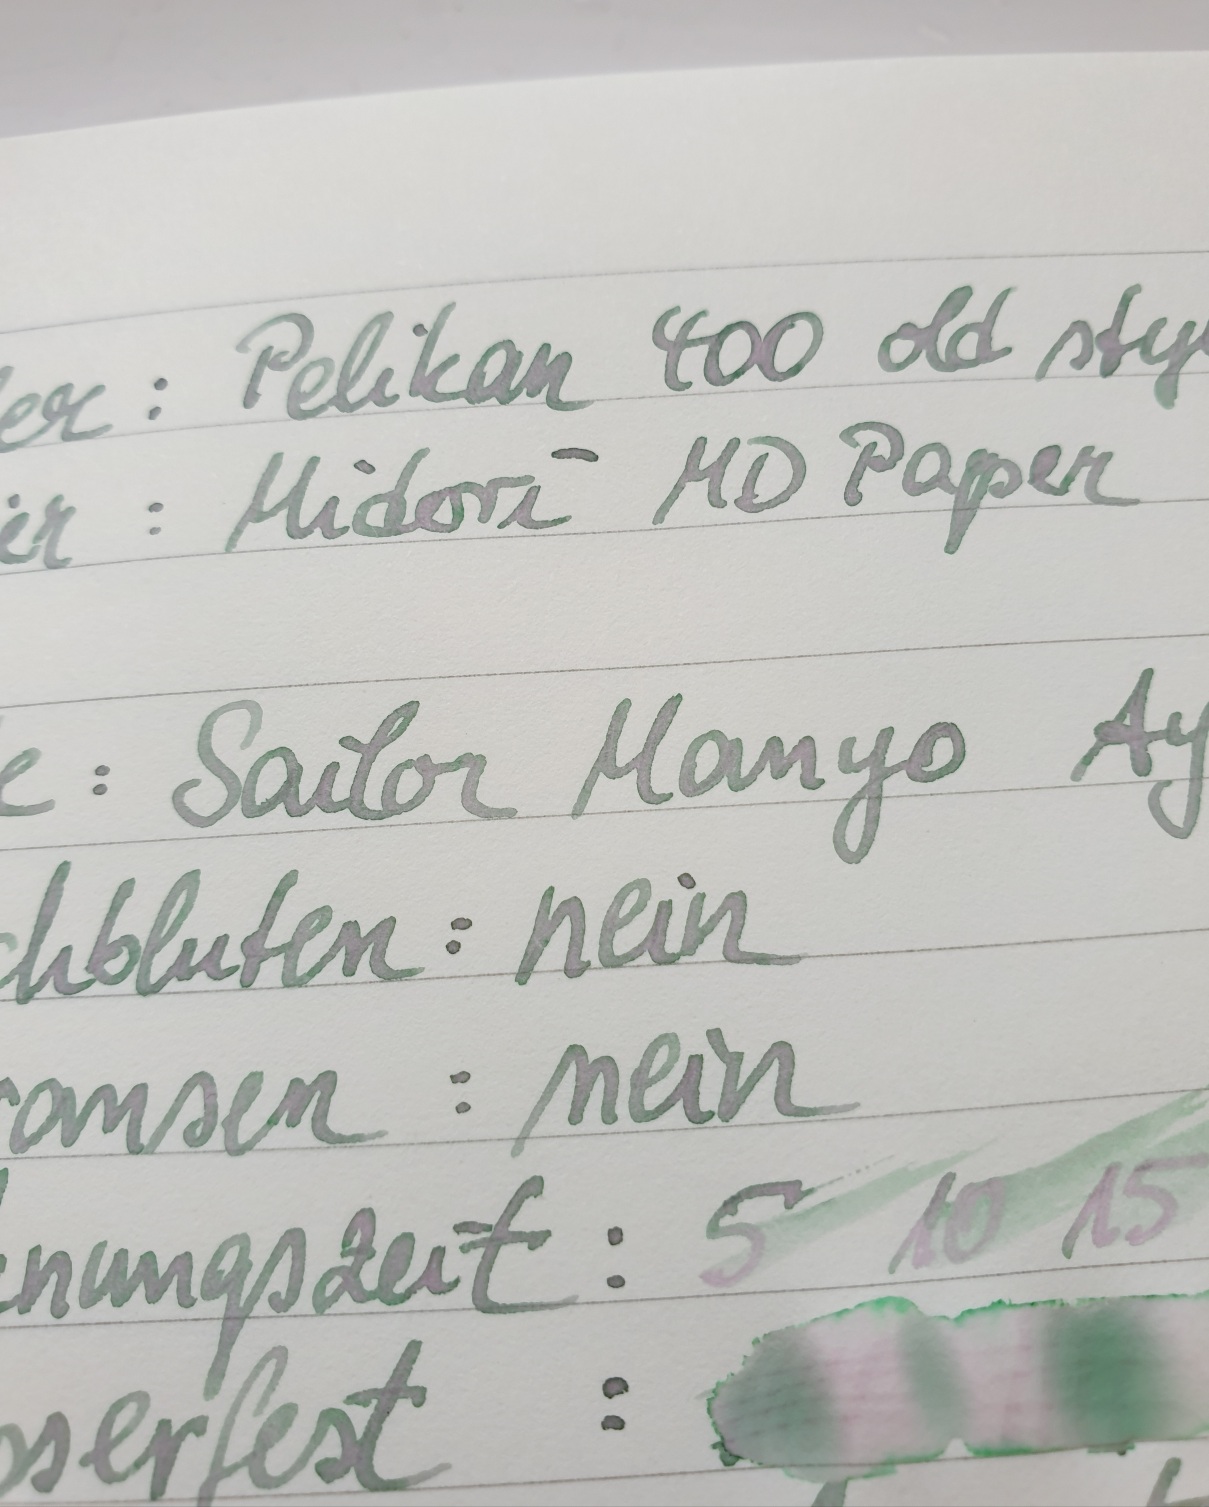 er : Pelikan 400 old sty
ier : Midori MD Paper
e : Sailor Manyo Ay
chbluten : nein
ransen : nein
nungszeit : 5 10 15
sserfest :